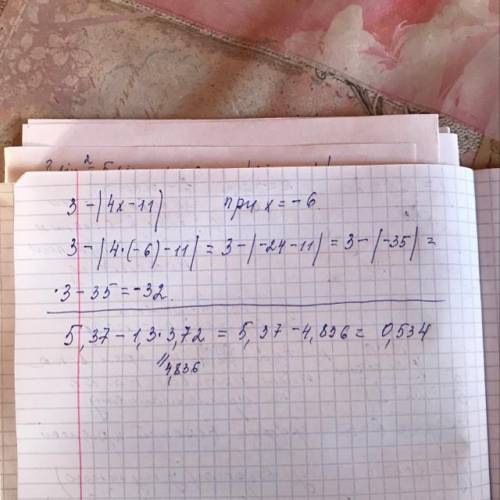 3-|4x-11| при x=-6.
3-|4·(-6)-11|=3-|-24-11|=3-|-35|=
·3-35=-32.
5,37-1,3·3,72 = 5,37-4,836= 0,534
4,836